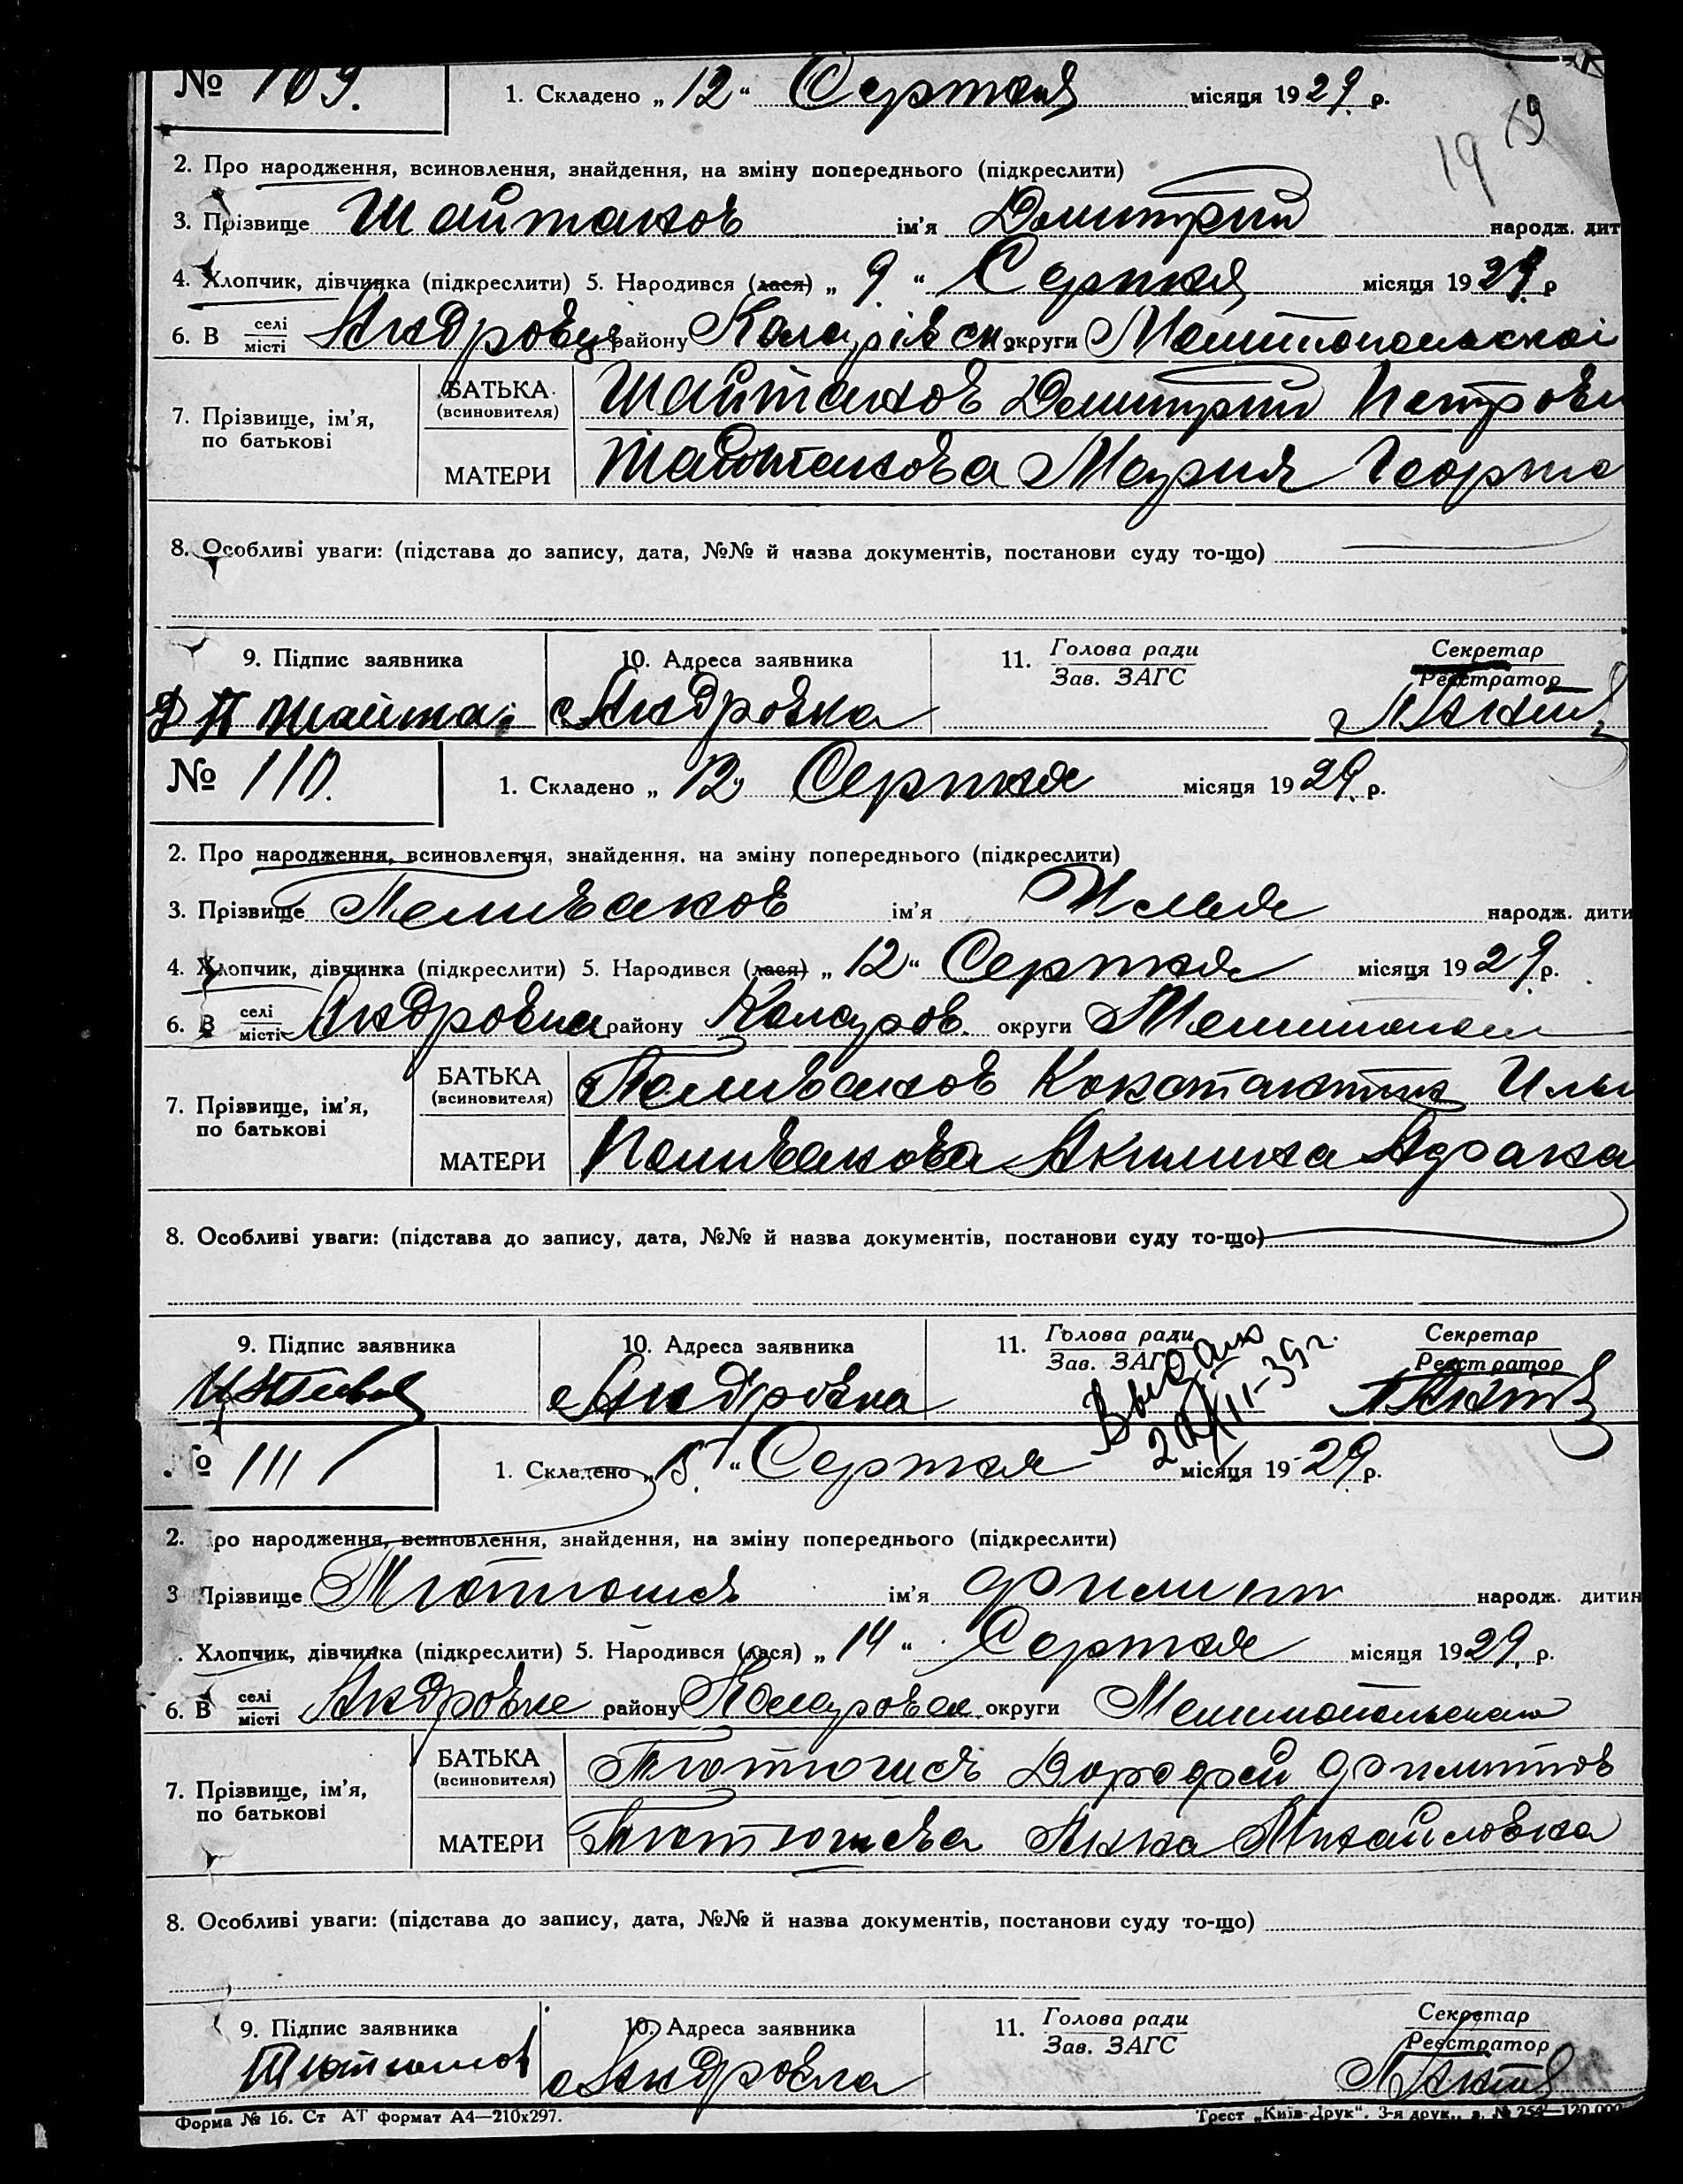 № 109. 1. Складено „12“ Серпня місяця 1929 р.
19 19
2. Про народження, всиновлення, знайдення, на зміну попереднього (підкреслити)
3. Прізвище Шайтанов ім'я Дмитрий народж. дит
4. Хлопчик, дівчинка (підкреслити) 5. Народився (лася) „9“ Серпня місяця 1929 р
6. В селі місті Андровці району Коларівськ округи Мелитопольскоі
7. Прізвище, ім'я, по батькові
БАТЬКА (всиновителя) Шайтанов Дмитрий Петрови
МАТЕРИ Шайтанова Мария Георги
8. Особливі уваги: (підстава до запису, дата, №№ й назва документів, постанови суду то-що)
9. Підпис заявника 10. Адреса заявника 11. Голова ради Зав. ЗАГС Секретар Реєстратор
Д П Шайта с Андровка
№ 110. 1. Складено „12“ Серпня місяця 1929. р.
2. Про народження, всиновлення, знайдення, на зміну попереднього (підкреслити)
3. Прізвище Пеливанов ім'я Илья народж. дити
4. Хлопчик, дівчинка (підкреслити) 5. Народився (лася) „12“ Серпня місяця 1929. р.
6. В селі місті Андровка району Коларов. округи Мелитопол
7. Прізвище, ім'я, по батькові
БАТЬКА (всиновителя) Пеливанов Константин Ильи
МАТЕРИ Пеливанова Акилина
8. Особливі уваги: (підстава до запису, дата, №№ й назва документів, постанови суду то-що)
9. Підпис заявника 10. Адреса заявника 11. Голова ради Зав. ЗАГС Секретар Реєстратор
с Андровка Выдано
№ 111 1. Складено „15“ Серпня місяця 1929. р.
2. Про народження, всиновлення, знайдення, на зміну попереднього (підкреслити)
3 Прізвище Тютюнов ім'я Филипп народж. дитин
. Хлопчик, дівчинка (підкреслити) 5. Народився (лася) „14“ Серпня місяця 1929. р.
6. В селі місті Андровке району Коларовск. округи Мелитопольской
7. Прізвище, ім'я, по батькові
БАТЬКА (всиновителя) Дорофей Филиппов
МАТЕРИ Анна Михайловна
8. Особливі уваги: (підстава до запису, дата, №№ й назва документів, постанови суду то-що)
9. Підпис заявника 10. Адреса заявника 11. Голова ради Зав. ЗАГС Секретар Реєстратор
с Андровка
Форма № 16. Ст АТ формат А4—210x297. Трест „Київ-Друк“. 3-я друк., з. № 254—120.000